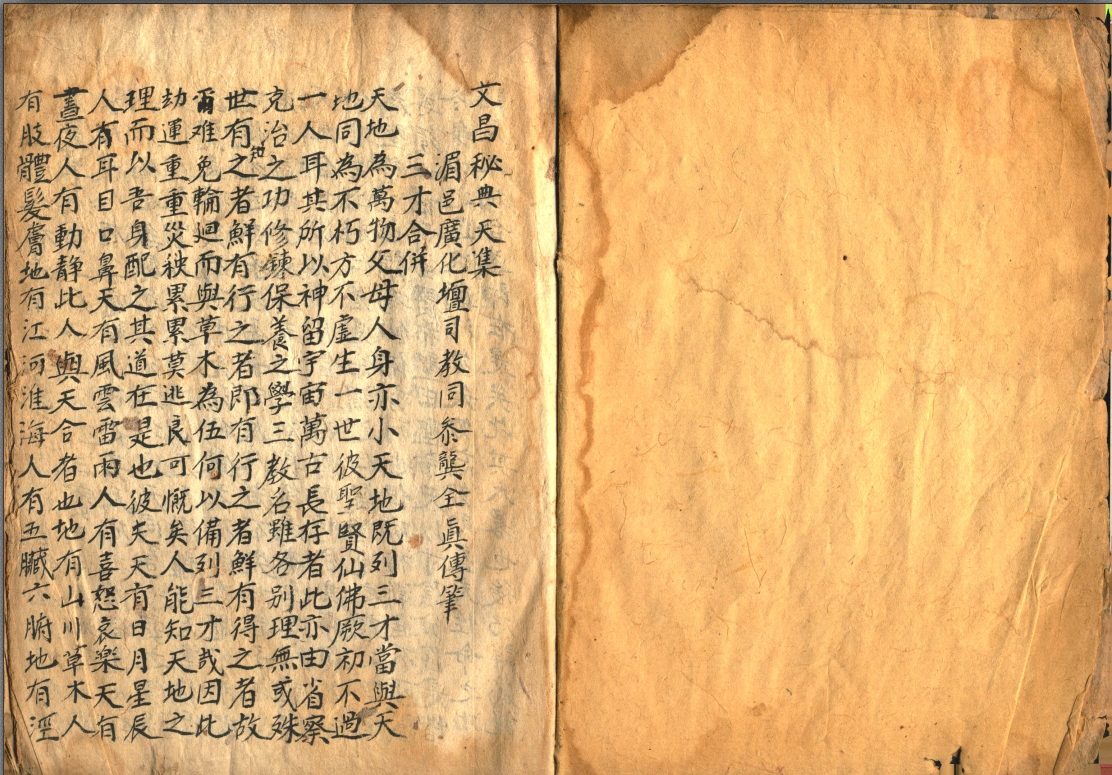 文昌秘典天集
湄邑廣化壇司教同叅龔全眞傳筆
三才合併
天地為萬物父母人身亦小天地既列三才當與天
地同為不朽方不虛生一世彼聖賢仙佛厥初不過
一人耳其所以神留宇宙萬古長存者此亦由省察
克治之功修鍊保養之學三教名雖各別理無或殊
世有知之者鮮有行之者即有行之者鮮有得之者故
爾难免輪迴而與草木為伍何以備列三才哉因此
劫運重重災秧累累莫逃良可慨矣人能知天地之
理而以吾身配之其道在是也彼夫天有日月星辰
人有耳目口鼻天有風雲雷雨人有喜怒哀樂天有
晝夜人有動静此人與天合者也地有山川草木人
有肢體髮膚地有江河淮海人有五臟六腑地有涇